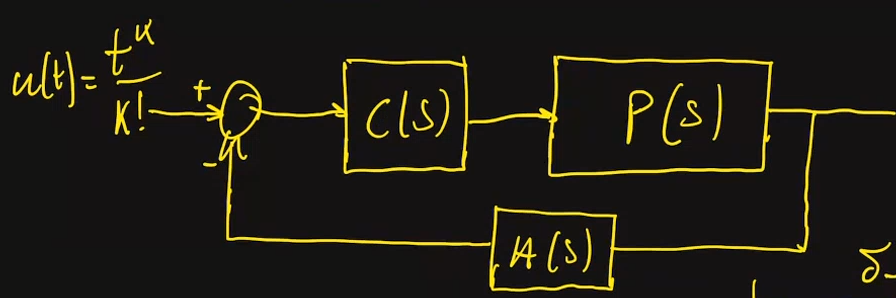 u(t) = t^k / k!
+
-
C(s)
P(s)
H(s)
δ-